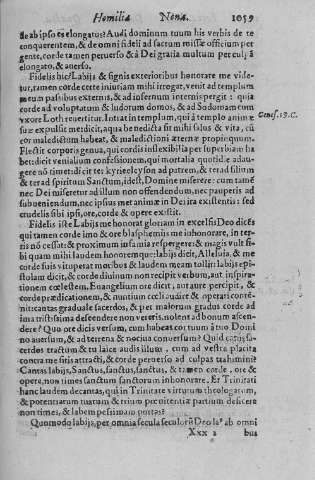 Homiliæ Nonæ. 1059
de ab ipso es elongatus? Audi dominum tuum his verbis de te
conquerentem, & de omni fideli ad sacrum missæ officium per
gente, corde tamen peruerso & à Dei gratia multum per culpā
elongato, & auerso.
Fidelis hic, Labijs & signis exterioribus honorare me vide
tur, tamen corde certe iniuriam mihi irrogat, venit ad templum
meum passibus externis, & ad infernum internis pergit: quia
corde ad voluptatum & ludorum domos, & ad Sodomam cum
vxore Loth reuertitur. Intrat in templum, qui à templo animæ
suæ expulsit me: dicit, aqua benedicta sit mihi salus & vita, &
cor maledictum habeat, & maledictioni æternæ propinquum.
Flectit corporis genua, qui cordis inflexibilia per superbiam ha
bet: dicit venialium confessionem, qui mortalia quotidie adau-
gere nō timet: dicit ter kyrieeleyson ad patrem, & ter ad filium
& ter ad spiritum Sanctum, idest, Domine miserere: cum tamē
nec Dei misereatur ad illum non offendendum, nec pauperis ad
subueniendum, nec ipsius met animæ in Dei ira existentis: sed
crudelis sibi ipsi, ore, corde & opere existit.
Fidelis iste Labijs me honorat gloriam in excelsis Deo dicēs
qui tamen corde imo & ore blasphemijs me inhonorare, in ter-
ris nō cessat: & proximum infamia respergere: & magis vult si-
bi quam mihi laudem honoremque: labijs dicit, Alleluia, & me
corde suis vituperat moribus & laudem meam tollit: labijs epi-
stolam dicit, & corde diuinum non recipit verbum, aut inspira-
tionem cœlestem. Euangelium ore dicit, aut aure percipit, &
corde prædicationem, & nuntium cœli audit & operari conté-
nit: cantas graduale sacerdos, & per malorum gradus corde ad
ima tristissima descendere non vereris, nolens ad bonum ascen-
dere? Quo ore dicis versum, cum habeas cor tuum à tuo Domi
no auersum, & ad terrena & nociua conuersum? Quid canis sa-
cerdos tractum & tu laice audis illum, cum ad vestra placita
contra me sitis attracti, & corde peruerso ad culpas trahimini?
Cantas labijs, Sanctus, sanctus, sanctus, & tamen corde, ore &
opere, non times sanctum sanctorum inhonorare. Et Trinitati
hanc laudem decantas, qui in Trinitate virtutum theologarum,
& potentiarum tuarum & trium pœnitentiæ partium deficere
non times, & labem pessimam portas?
Quomodo labijs, per omnia secula seculorū Deo laus ab omni
Xxx 2 bus
Genes. 19. C.